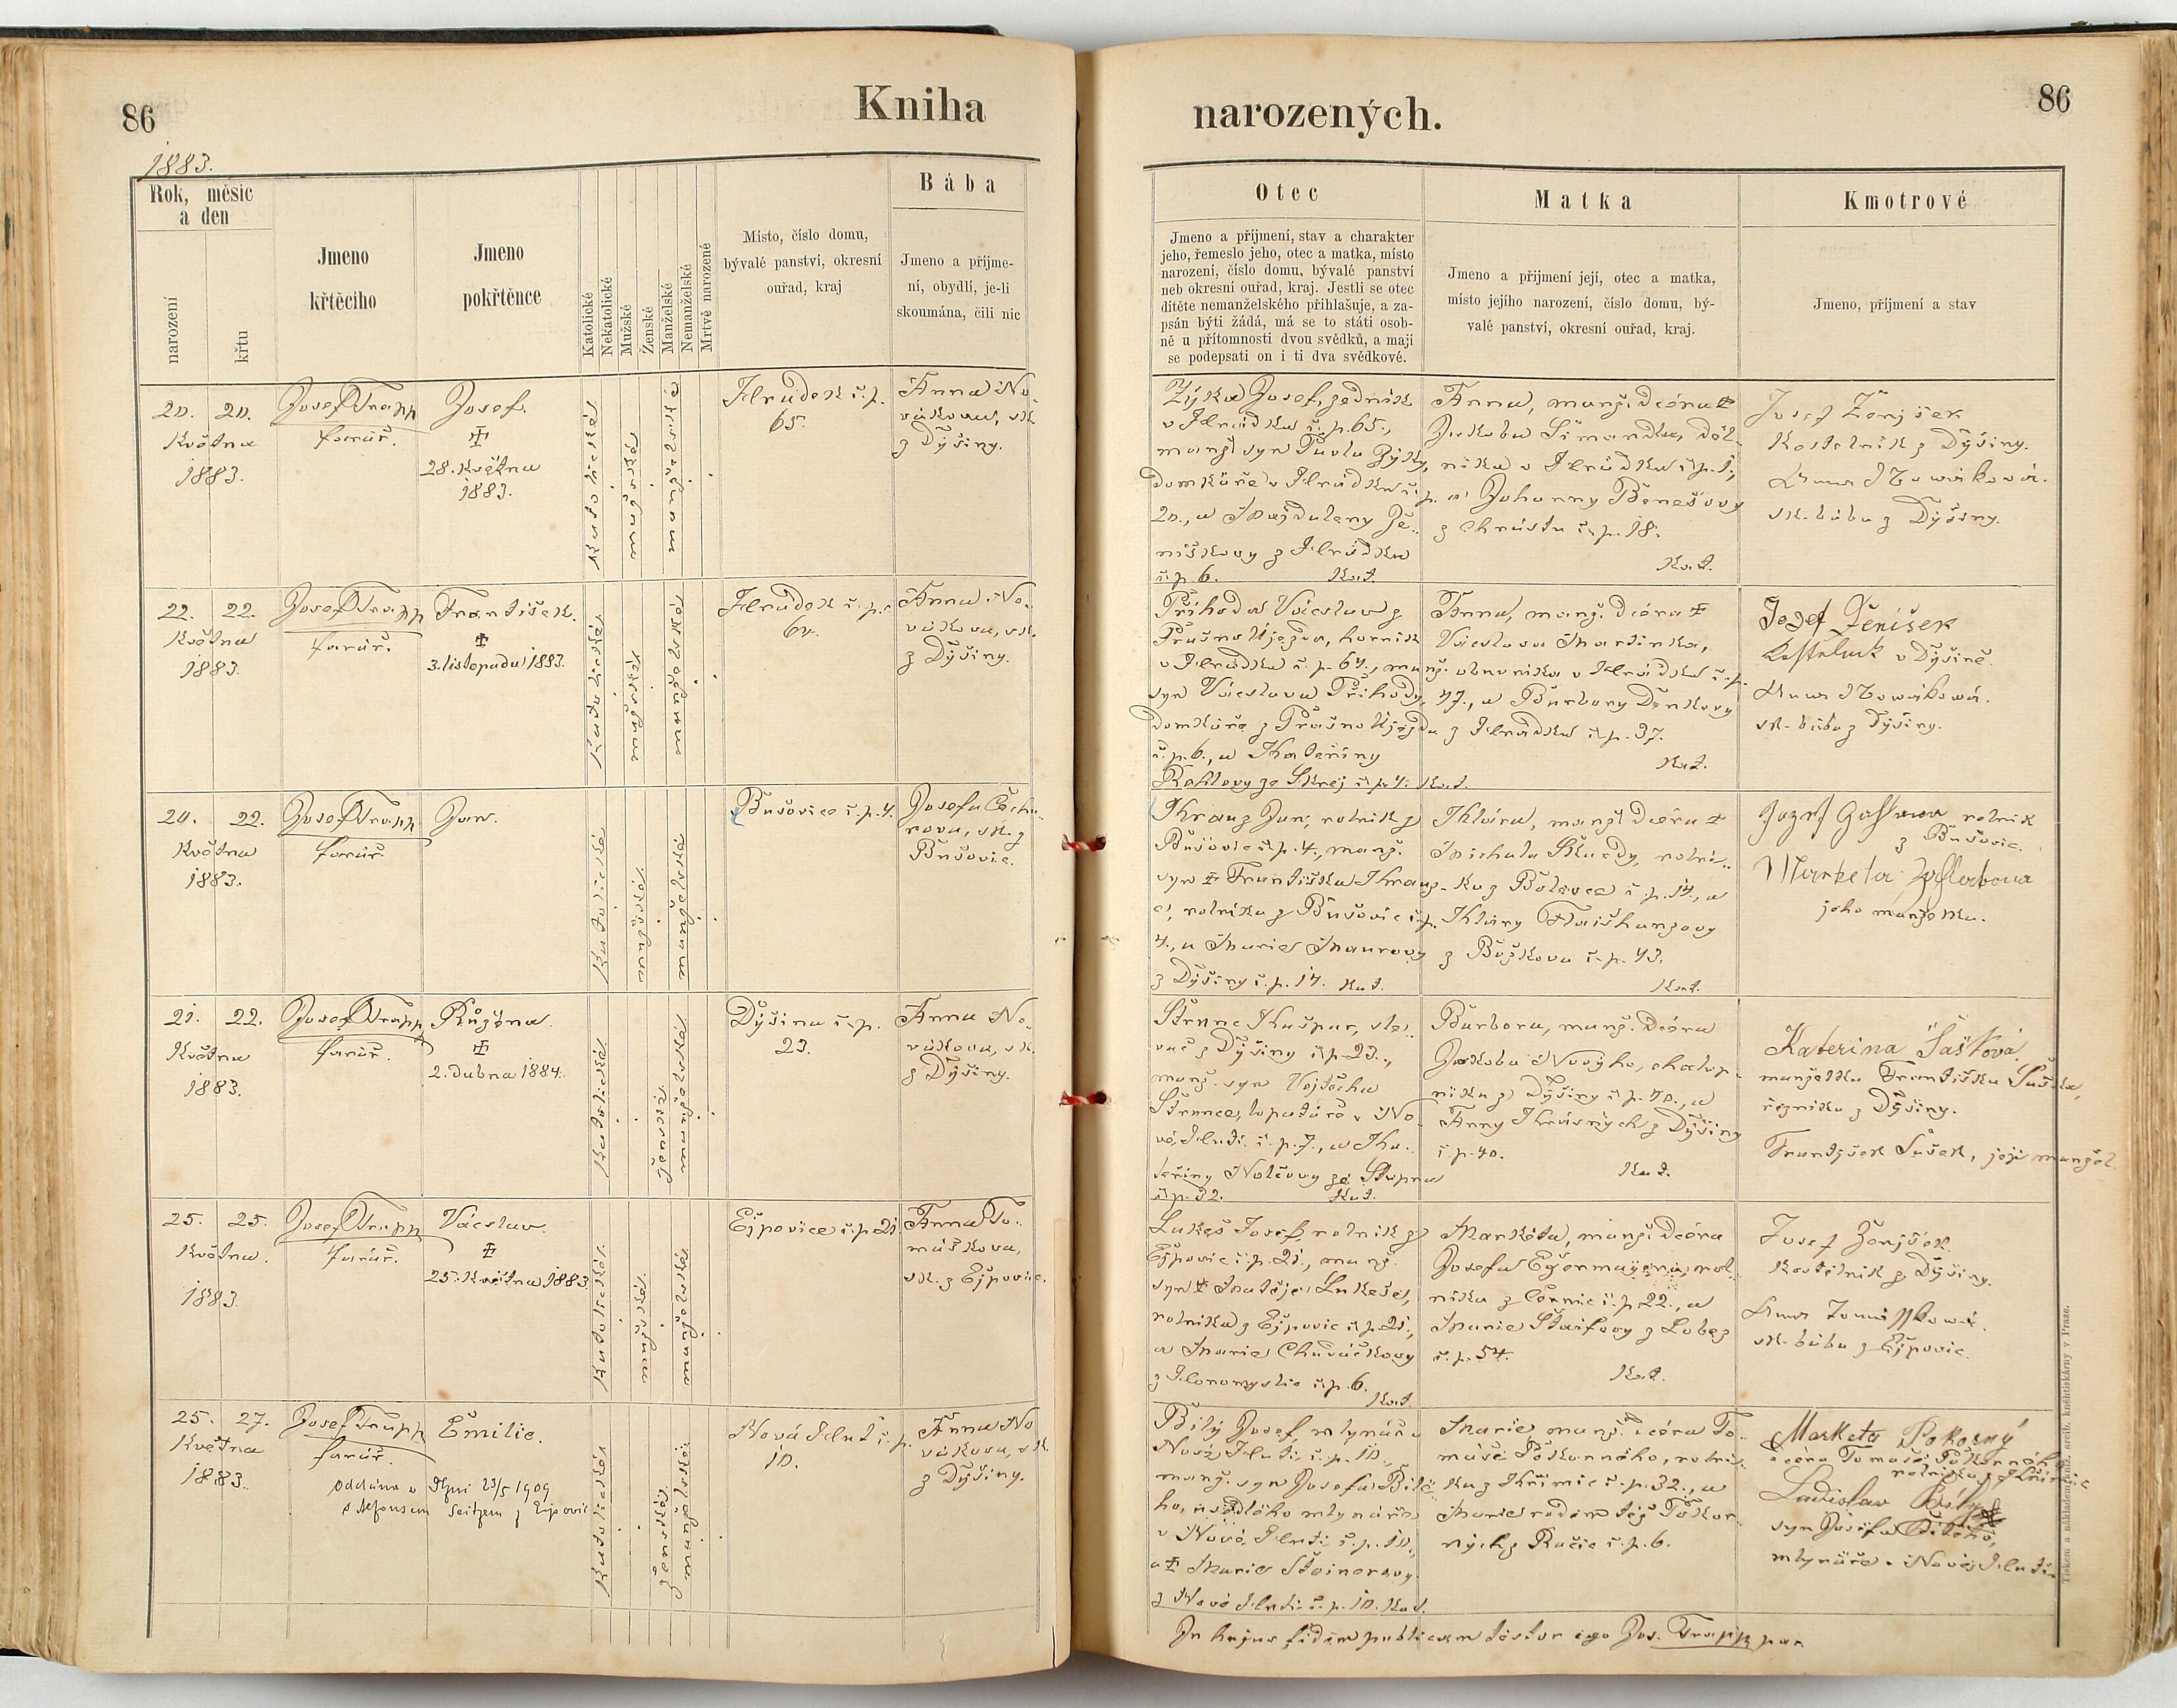 86
Kniha
narozených.
86
1883.
Rok, měsíc
a den
narození
křtu
Jmeno
křtěcího
Jmeno
pokřtěnce
Katolické
Nekatolické
Mužské
Ženské
Manželské
Nemanželské
Mrtvě narozené
Místo, číslo domu,
bývalé panství, okresní
ouřad, kraj
Bába
Jmeno a příjme-
ní, obydlí, je-li
skoumána, čili nic
Otec
Jmeno a příjmení, stav a charakter
jeho, řemeslo jeho, otec a matka, místo
narození, číslo domu, bývalé panství
neb okresní ouřad, kraj. Jestli se otec
dítěte nemanželského přihlašuje, a za-
psán býti žádá, má se to státi osob-
ně u přítomnosti dvou svědků, a mají
se podepsati on i ti dva svědkové.
Matka
Jmeno a příjmení její, otec a matka,
místo jejího narození, číslo domu, bý-
valé panství, okresní ouřad, kraj.
Kmotrové
Jmeno, příjmení a stav
20. 20.
Května
1883.
Josef Trapp
farář.
Josef.
28. Května
1883.
katolické
mužské
manželské
Hrádek č. p.
65.
Anna No-
váková, zk.
z Dýšiny.
Zýka Josef, zedník
v Hrádku č. p. 65.,
manž. syn Pavla Zýky,
domkáře v Hrádku č. p.
20., a Magdaleny Že-
níškovy z Hrádku
č. p. 6. Kat.
Anna, manž. dcéra
Jakuba Šimandla, děl-
níka v Hrádku č. p. 1.,
a Johanny Benešovy
z Chrástu č. p. 18.
Kat.
Josef Ženjšek
Kostelník z Dýšiny.
Anna Nowáková.
zk. bába z Dýšiny.
22. 22.
Května
1883.
Josef Trapp
farář.
František.
3. listopadu 1883.
katolické
mužské
manželské
Hrádek č. p.
64.
Anna No-
váková, zk.
z Dýšiny.
Příhoda Václav z
Prašno Újezda, horník
v Hrádku č. p. 64., manž.
syn Václava Příhody,
domkáře z Prašno Újezda
č. p. 6., a Kateřiny
Kat.
Anna, manž. dcéra
Václava Martínka,
v Hrádku č. p.
47., a Barbory
z Hrádku č. p. 37.
Kat.
Josef Ženíšek
Kostelník v Dýšině.
Anna Nowaková.
zk. bába z Dýšiny.
20. 22.
Května
1883.
Josef Trapp
farář
Jan.
katolické
mužské
manželské
Bušovice č. p. 4.
Josefa Čecho-
rova, zk. z
Bušovic.
Krauz Jan, rolník z
Bušovic č. p. 4., manž.
syn Františka Krauz-
e, rolníka z Bušovic č. p.
4., a Marie Maurovy
z Dýšiny č. p. 14. Kat.
Klára, manž. dcéra
Michala rolní-
ka z Bolevce č. p. 14., a
Kláry
z Božkova č. p. 43.
Kat.
rolník
z Bušovic.
Marketa
jeho manželka.
21. 22.
Května
1883.
Josef Trapp
farář.
Růžena.
2. dubna 1884.
katolické
ženské
manželské
Dýšina č. p.
23.
Anna No-
vákova, zk.
z Dýšiny.
Štrunc Kašpar,
z Dýšiny č. p. 23.,
manž. syn Vojtěcha
Štrunce, v No-
vé Huti č. p. 7., a Ka-
teřiny ze Stupna
č. p. 32. Kat.
Barbora, manž. dcéra
Jakuba Nového, chalup-
níka z Dýšiny č. p. 40., a
Anny z Dýšiny
č. p. 40.
Kat.
Katerina Šašková
manželka Františka Šaška,
řezníka z Dýšiny.
Frantjšek Šašek, její manžel.
25. 25.
Května.
1883.
Josef Trapp
farář.
Václav.
25. Května 1883.
katolické
mužské
manželské
Ejpovice č. p. 21.
Anna To-
máškova,
zk. z Ejpovic.
Lukeš Josef, rolník z
Ejpovic č. p. 21., manž.
syn Matěje Lukeše,
rolníka z Ejpovic č. p. 21.,
a Marie Chudáčkovy
z Horomyslic č. p. 6.
Kat.
Markéta, manž. dcéra
Josefa rol-
níka z Černic č. p. 22., a
Marie Štaifovy z Lobez
č. p. 54.
Kat.
Josef Ženjšek
Kostelník z Dýšiny.
Anna Tomásskowá.
zk. bába z Ejpovic.
25. 27.
Května
1883.
Josef Trapp
farář.
Emilie.
oddána v Plzni 23/5 1909
s Alfonsem Seitzem z Ejpovic
katolické
ženské
manželské
Nová Huť č. p.
10.
Anna No-
vákova, zk.
z Dýšiny.
Bílý Josef, mlynář v
Nové Huti č. p. 10.,
manž. syn Josefa Bílé-
ho, mlynáře
v Nové Huti č. p. 10.,
a Marie Steinerovy
z Nové Huti č. p. 10. Kat.
Marie, manž. dcéra To-
máše Pokorného, rolní-
ka z Křimic č. p. 32., a
Marie rodem též Pokor-
ných z Radčic č. p. 6.
Marketa Pokorný
dcéra Tomáše Pokorného
rolníka z Křimic
Ladislav Bílý
syn Josefa Bílého,
mlynáře v Nové Huti.
In hujus fidem publicam testor ego Jos. Trapp par
Tiskem a nákladem kníž. arcib. knihtiskárny v Praze.